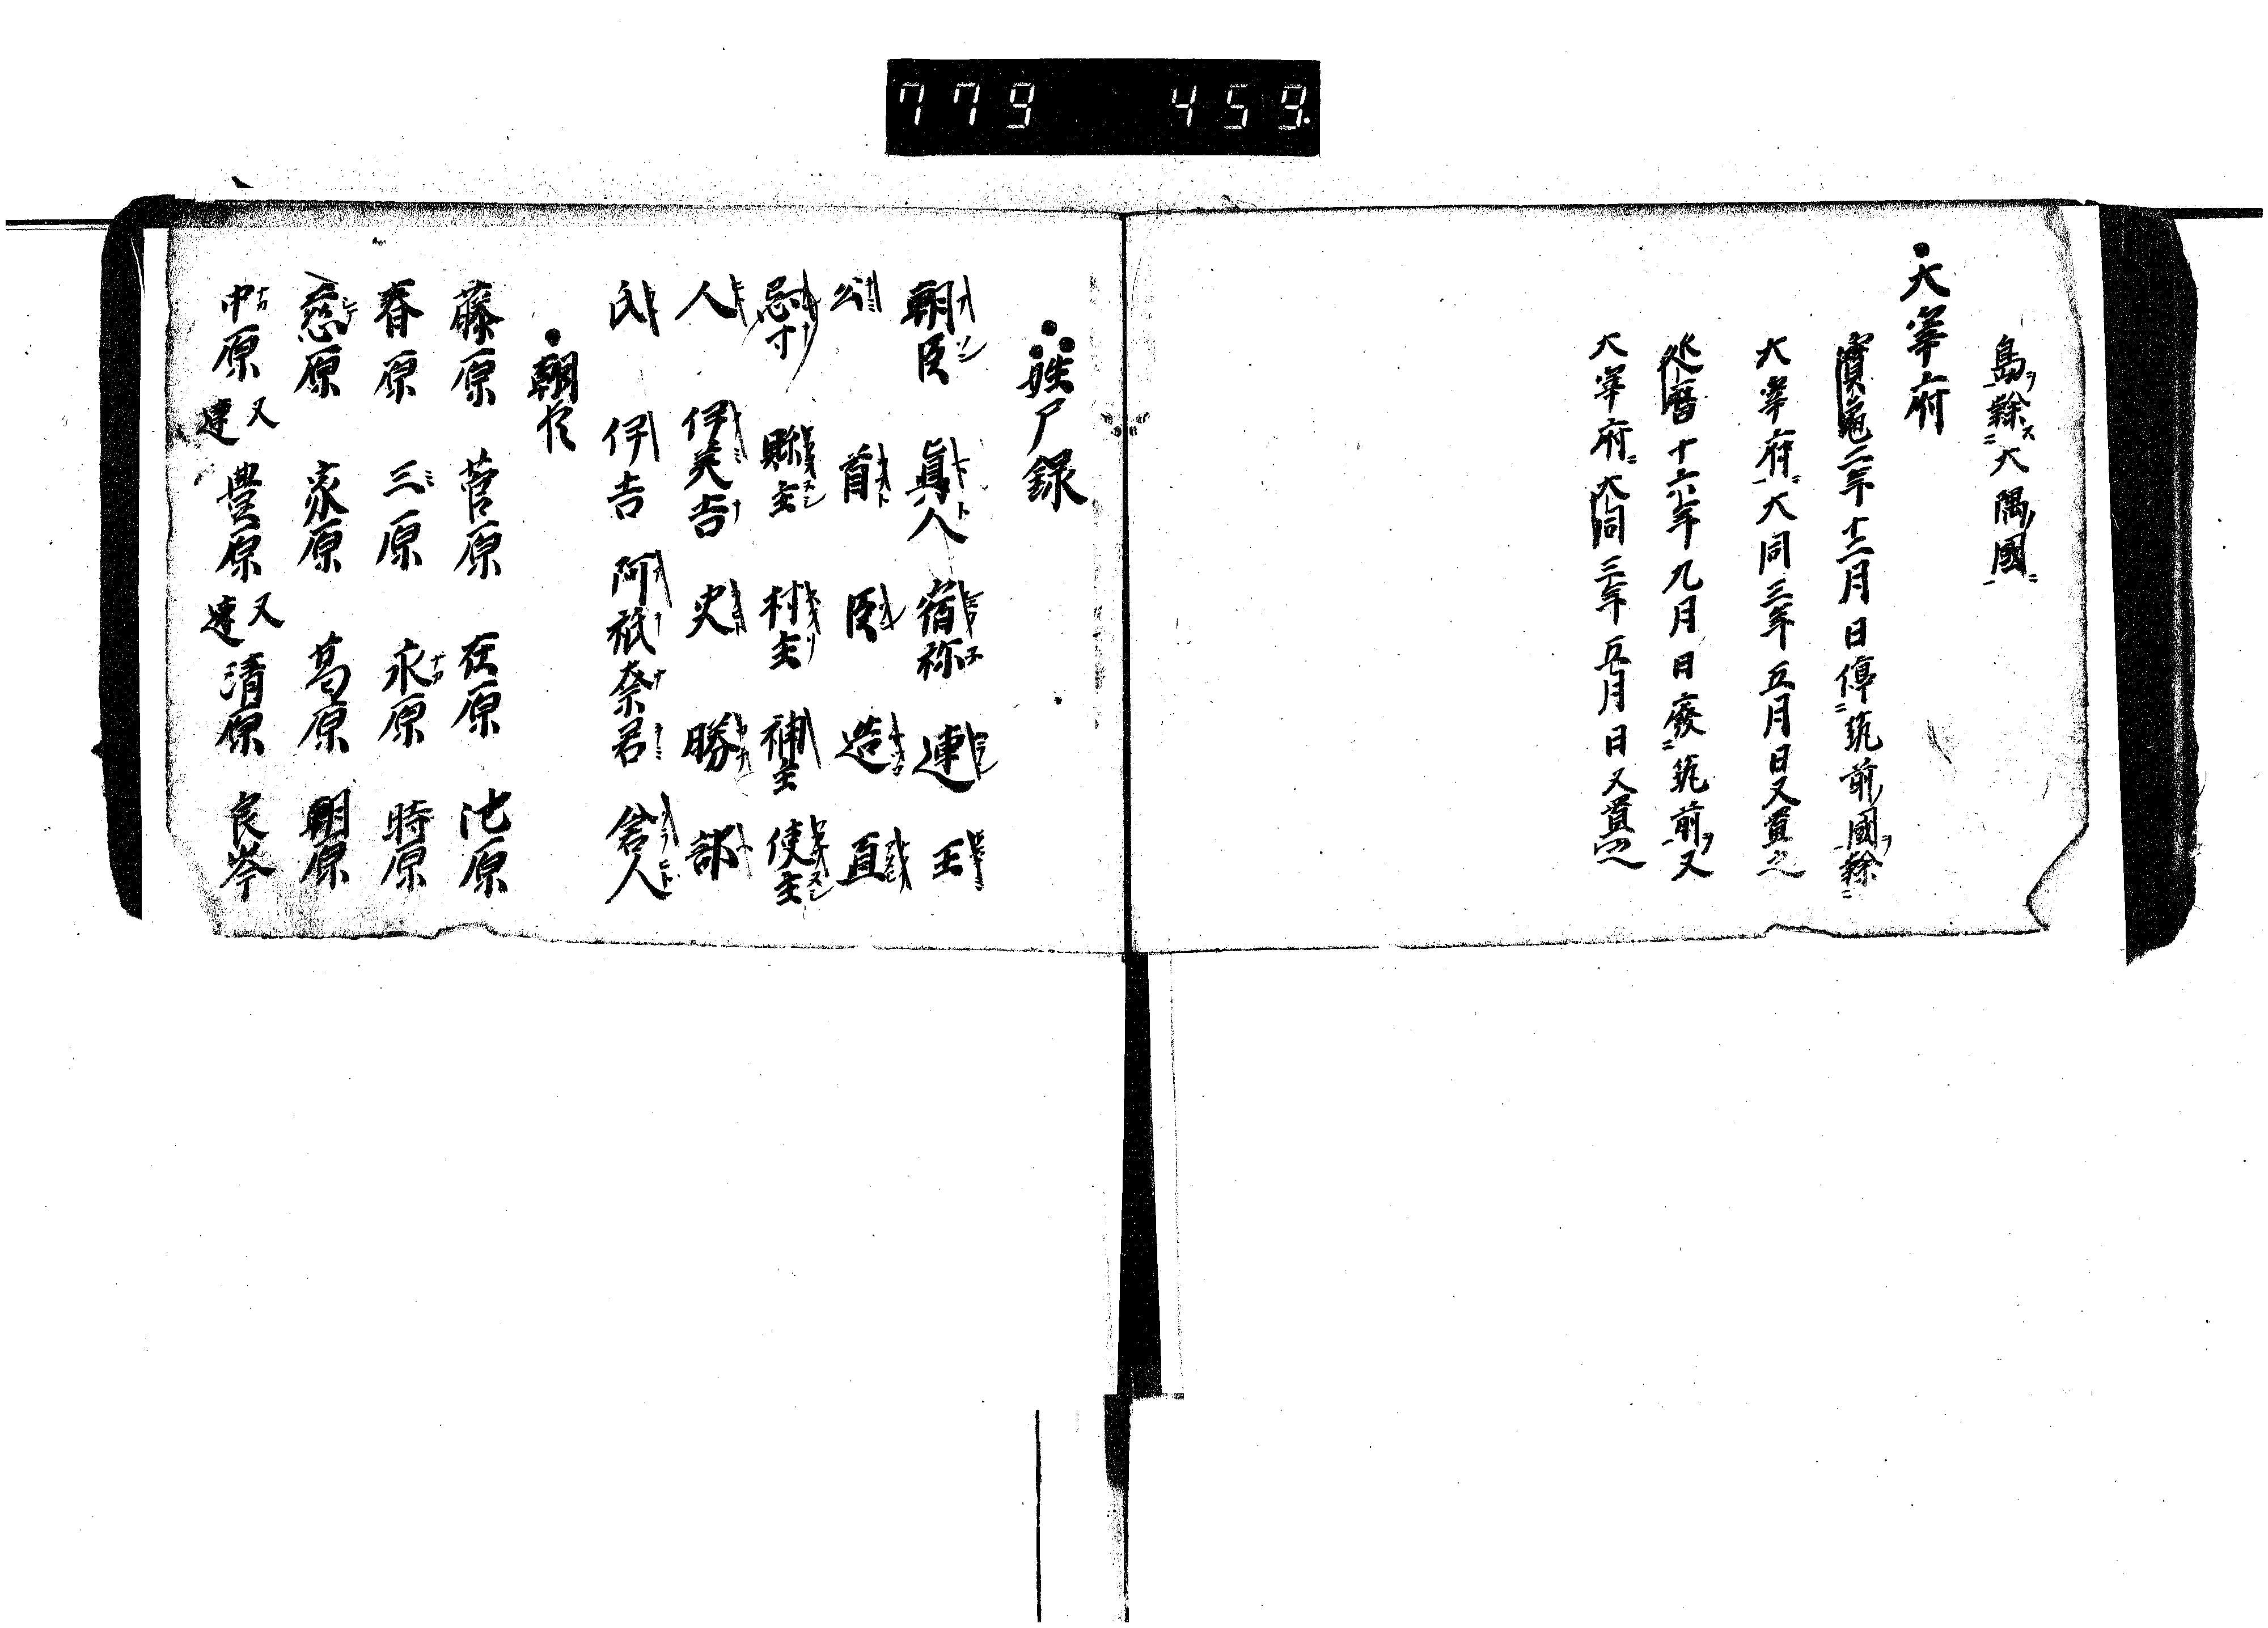 779 459.
島隸大隅國
大宰府
寶龜二年十二月日停筑前國隸
大宰府大同三年五月日又置之
延曆十六年九月日廢筑前又
大宰府大同三年五月日又置之
姓尸録
朝臣 眞人 宿祢 連 王
公 首 臣 造 直
忌寸 縣主 村主 神主 使主
人 伊美吉 史 勝 部
氏 伊吉 阿祇奈君 倉人
朝臣
藤原 菅原 在原 池原
春原 三原 永原 時原
慈原 家原 葛原 朝原
中原 又連 豊原 又連 清原 良岑